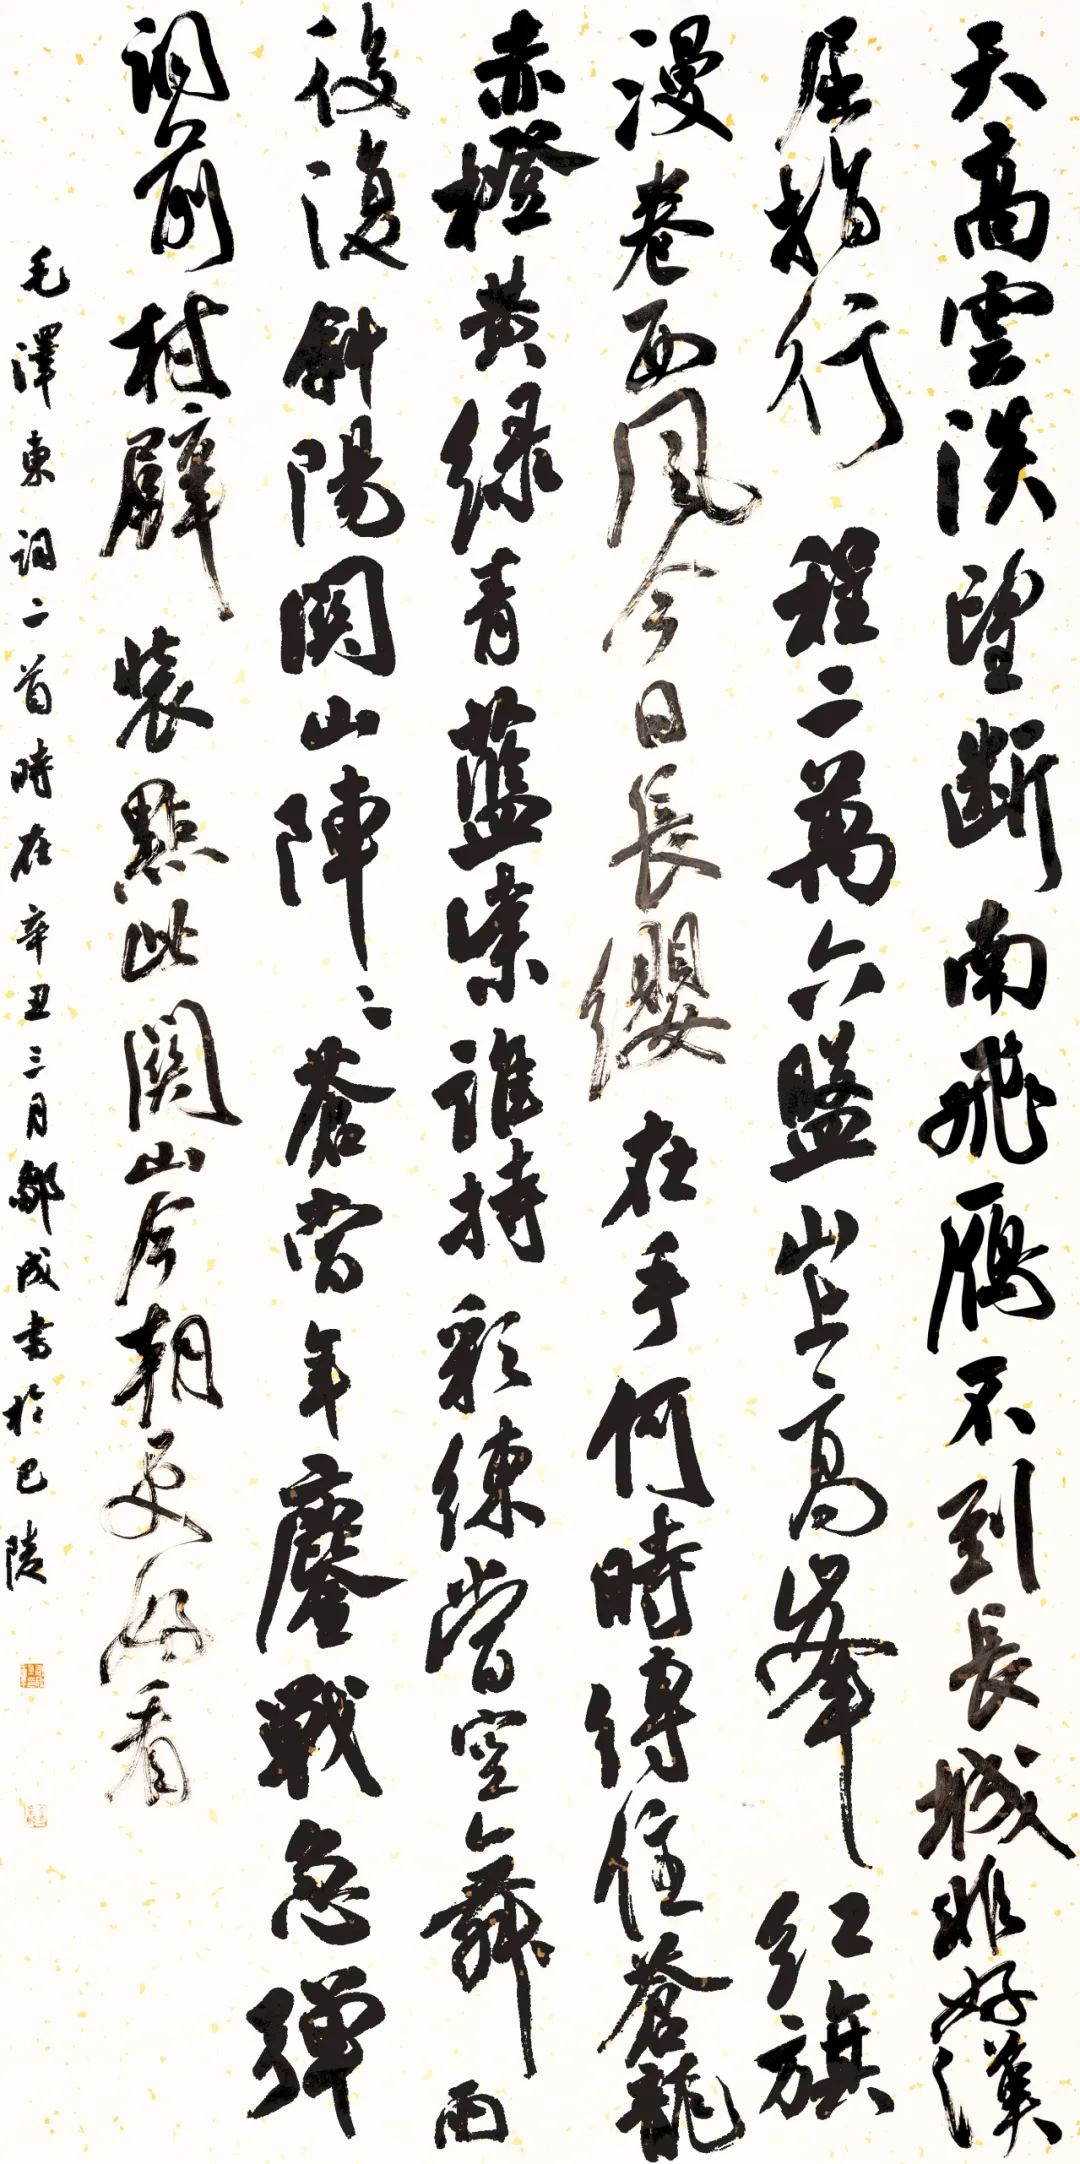 天高雲淡望斷南飛雁不到長城非好漢
屈指行程二萬六盤山上高峯紅旗
漫卷西風今日長纓在手何時縛住蒼龍
赤橙黃綠青藍紫誰持彩練當空舞雨
後復斜陽關山陣〻蒼當年鏖戰急彈
洞前村壁裝點此關山今朝更好看
毛澤東詞二首時在辛丑三月鄒成書於巴陵